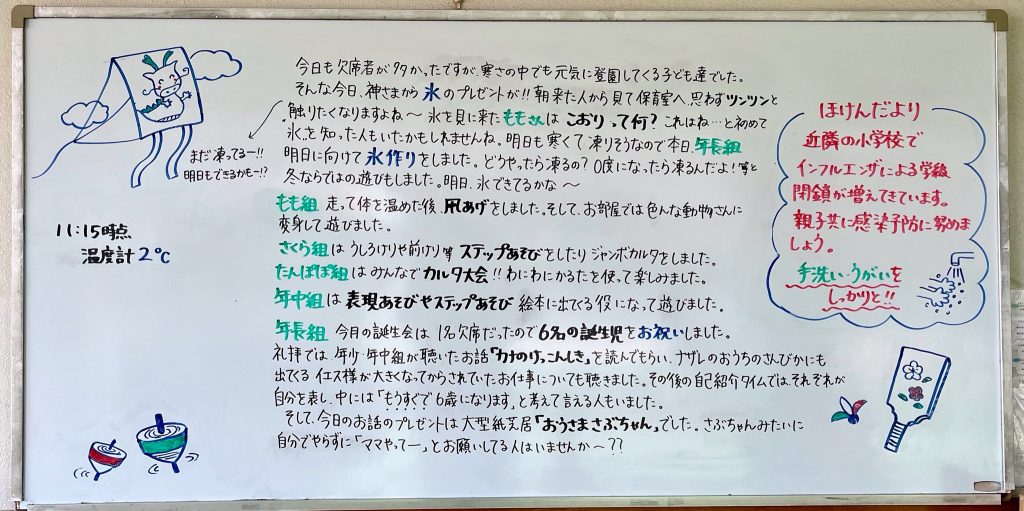 今日も欠席者が多かったですが、寒さの中でも元気に登園してくる子ども達でした。
そんな今日、神さまから氷のプレゼントが!! 朝来た人から見て保育室へ、思わずツンツンと
触りたくなりますよね〜 氷を見に来たももさんは こおりって何? これはね…と初めて
氷を知った人もいたかもしれませんね。明日も寒くて凍りそうなので本日、年長組
明日に向けて氷作りをしました。どうやったら凍るの? 0度になったら凍るんだよ!等と
冬ならではの遊びもしました。明日、氷できてるかな〜
もも組 走って体を温めた後、凧あげをしました。そして、お部屋では色んな動物さんに
変身して遊びました。
さくら組は うしろけりや前けり等 ステップあそびをしたり ジャンボカルタをしました。
たんぽぽ組は みんなで カルタ大会!! わにわにかるたを使って楽しみました。
年中組は 表現あそびやステップあそび 絵本に出てくる役になって遊びました。
年長組 今月の誕生会は 1名欠席だったので 6名の誕生児をお祝いしました。
礼拝では 年少・年中組が聴いたお話「カナのけっこんしき」を読んでもらい、ナザレのおうちのさんびかにも
出てくる イエス様が大きくなってからされていたお仕事についても聴きました。その後の自己紹介タイムでは、それぞれが
自分を表し、中には「もうすぐで6歳になります」と考えて言える人もいました。
そして、今日のお話のプレゼントは 大型紙芝居「おうさまさぶちゃん」でした。さぶちゃんみたいに
自分でやらずに「ママやってー」とお願いしてる人はいませんか〜??
まだ凍ってるー!!
明日もできるかもー!?
11:15時点
温度計 2℃
ほけんだより
近隣の小学校で
インフルエンザによる学級
閉鎖が増えてきています。
親子共に感染予防に努めま
しょう。
手洗い・うがいを
しっかりと!!